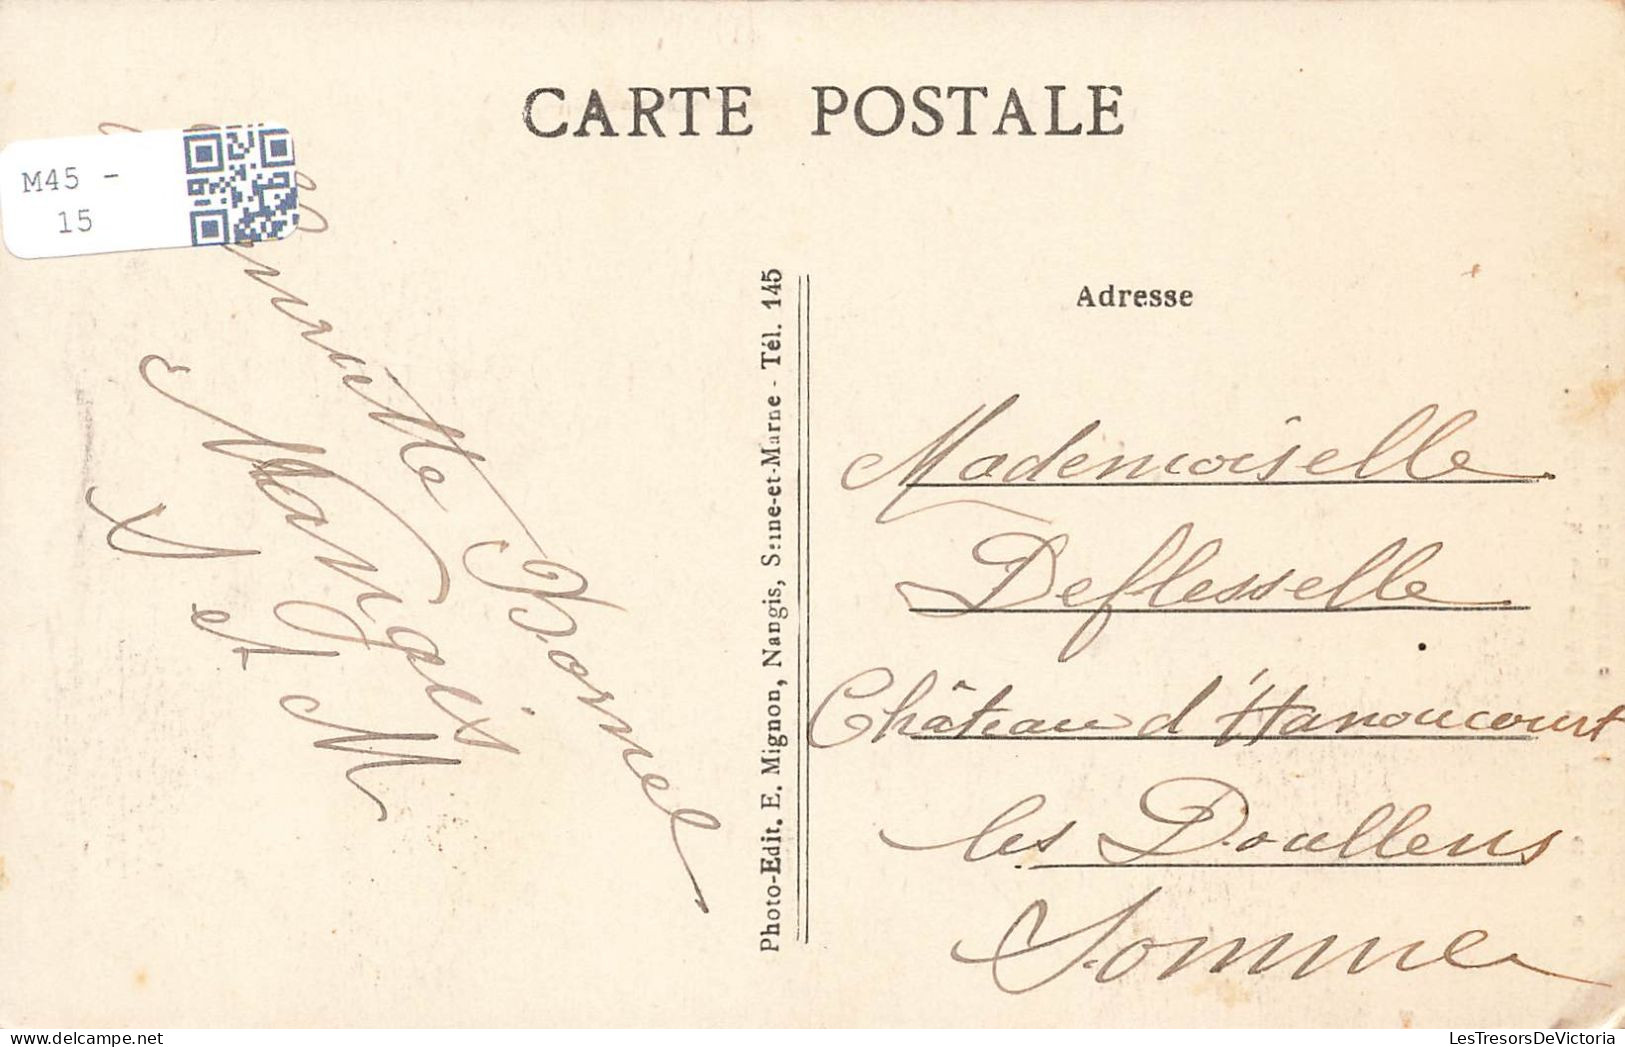 CARTE POSTALE
M45 -
15
Bornel
Nangis
S et M
Photo-Edit. E. Mignon, Nangis, Seine-et-Marne - Tél. 145
Adresse
Mademoiselle
Deflesselle
Château d'Hanoucourt
les Doullens
Somme
LesTresorsDeVictoria